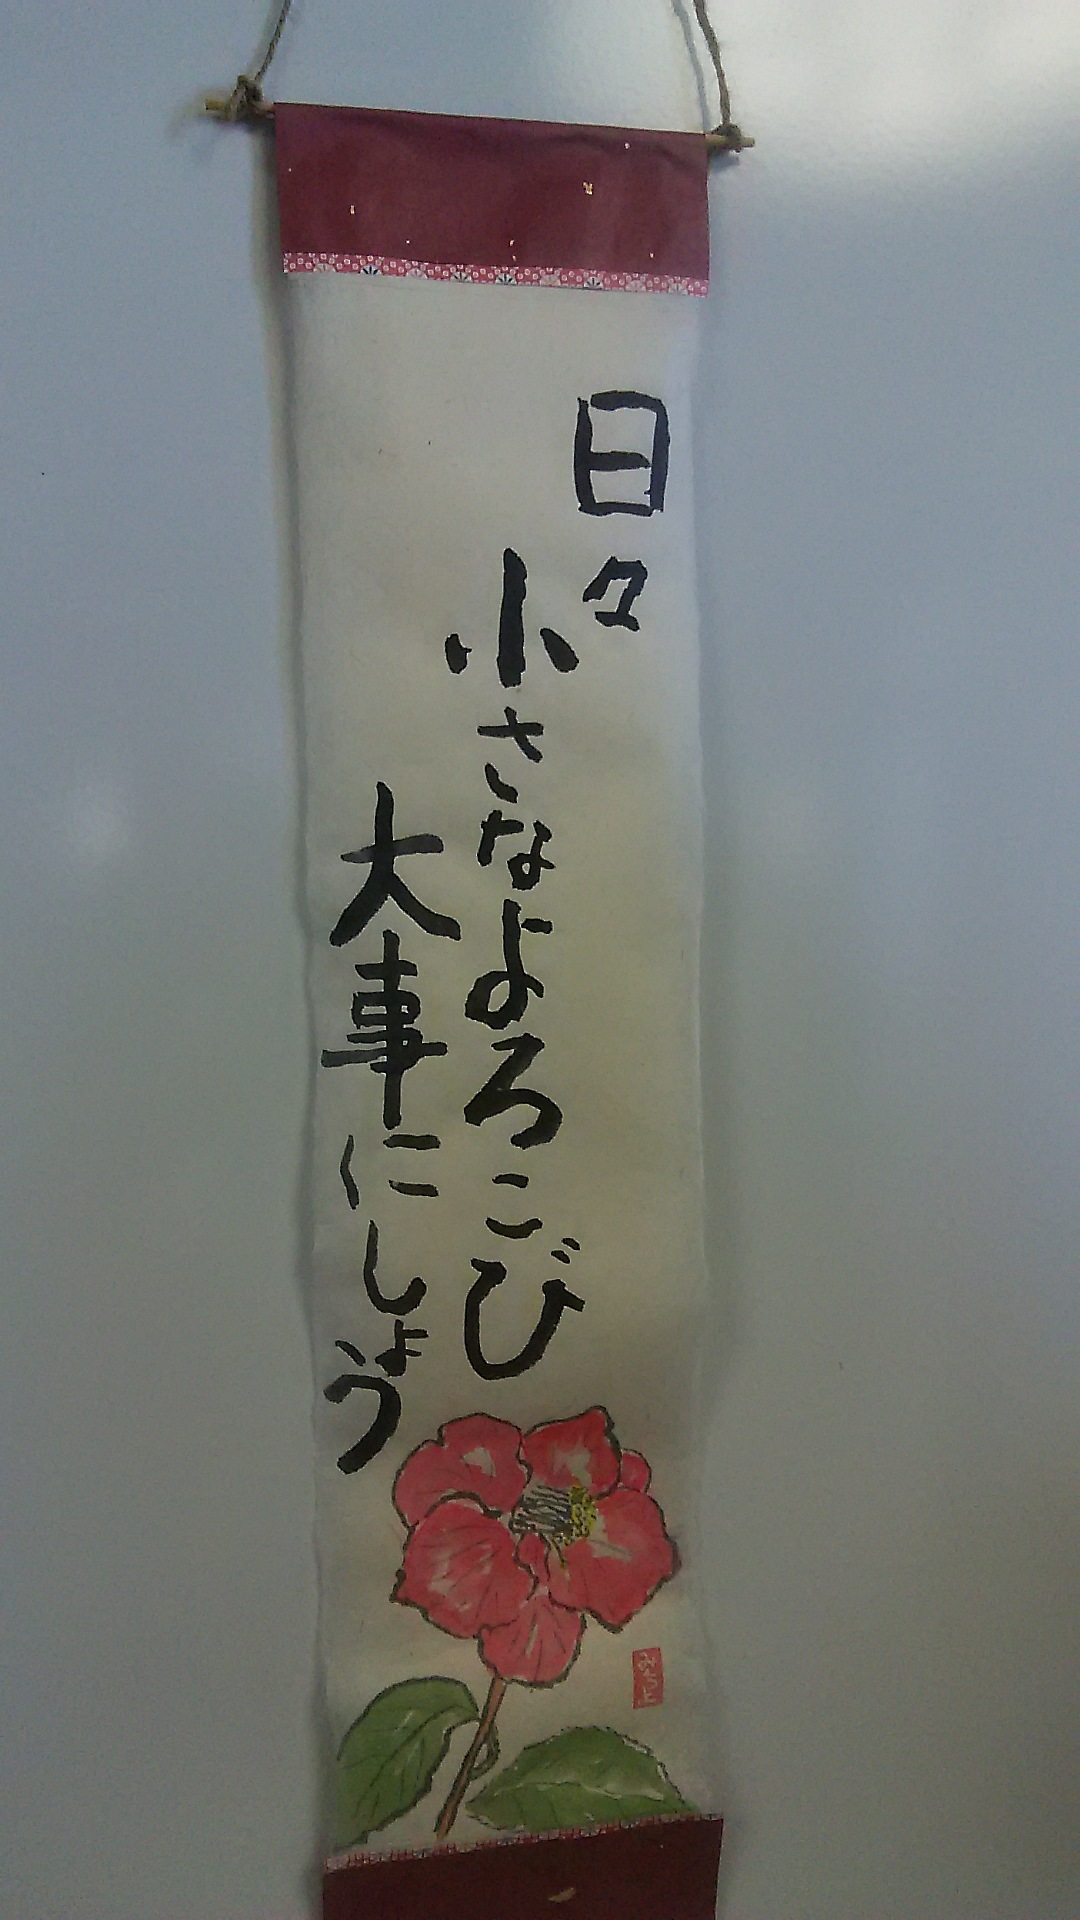 日々
小さなよろこび
大事にしょう
みちよ